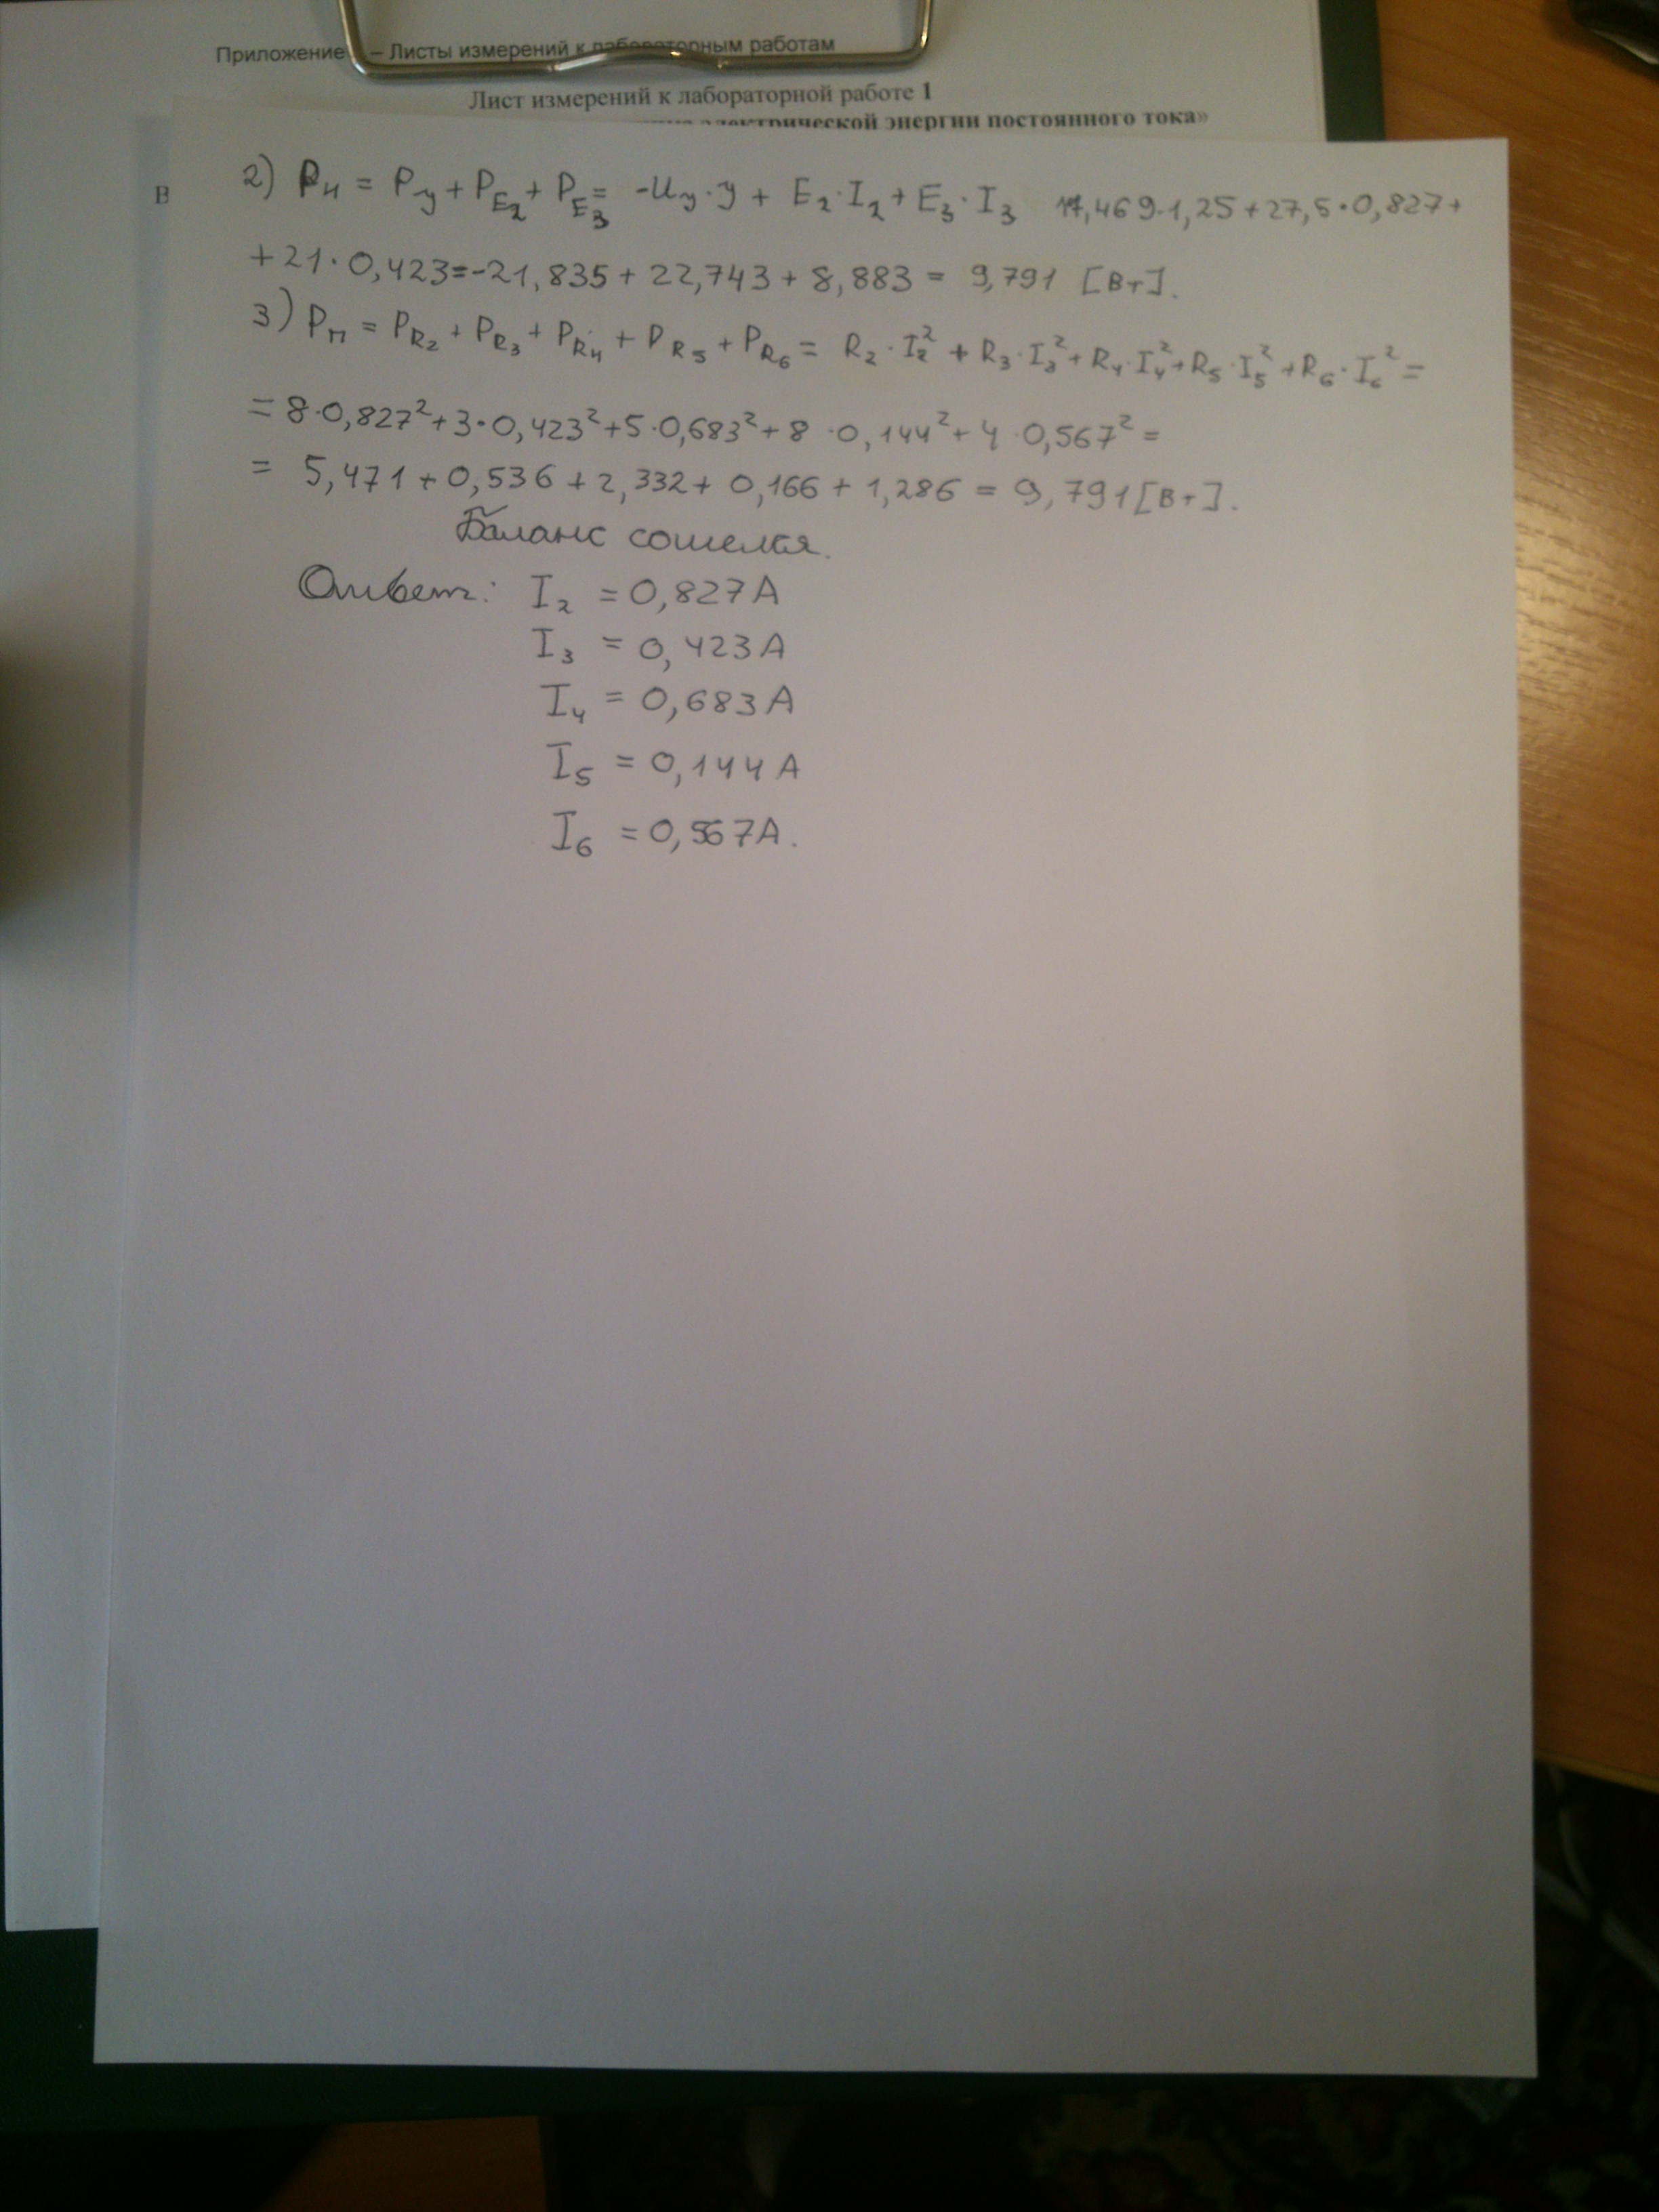 Приложение – Листы измерений к лабораторным работам
Лист измерений к лабораторной работе 1
электрической энергии постоянного тока»
В
2) Pи = Pу + PE2 + PE3 = -Uу·У + E2·I2 + E3·I3 17,469·1,25 + 27,5·0,827 +
+ 21·0,423 = -21,835 + 22,743 + 8,883 = 9,791 [Вт].
3) Pп = PR2 + PR3 + PR4 + PR5 + PR6 = R2·I2² + R3·I3² + R4·I4² + R5·I5² + R6·I6² =
= 8·0,827² + 3·0,423² + 5·0,683² + 8·0,144² + 4·0,567² =
= 5,471 + 0,536 + 2,332 + 0,166 + 1,286 = 9,791 [Вт].
Баланс сошелся.
Ответ: I2 = 0,827А
I3 = 0,423А
I4 = 0,683А
I5 = 0,144А
I6 = 0,567А.